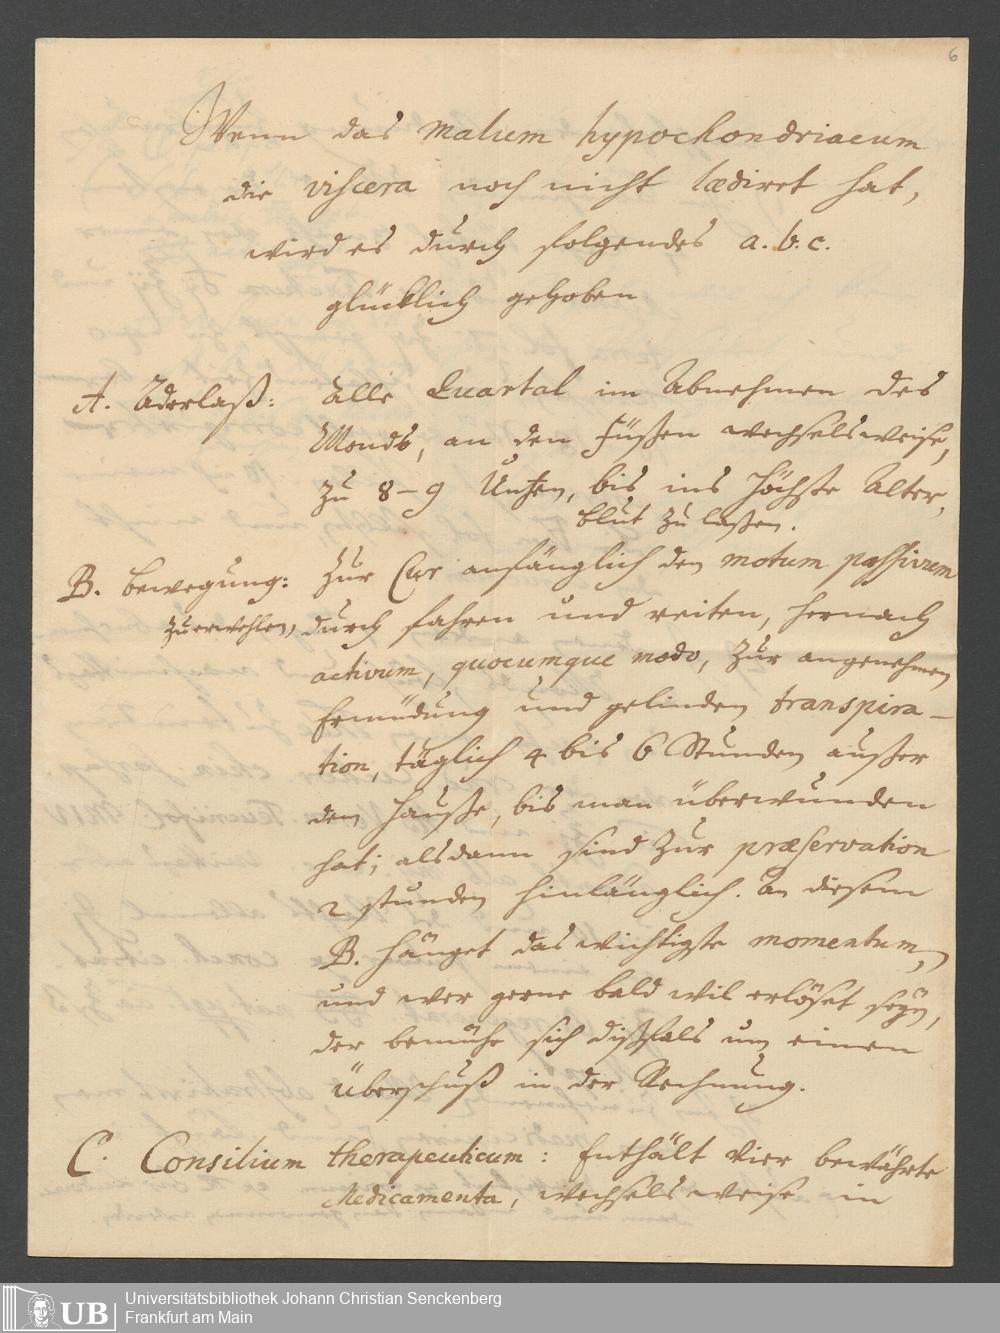 6
Wenn das malum hypochondriacum
die viscera noch nicht lædiret hat,
wird es durch folgendes a. b. c.
glücklich gehoben
A. Aderlaß: Alle Quartal im Abnehmen des
Monds, an den Füßen wechselsweise,
zu 8-9 Untzen, bis ins höchste Alter,
blut zu laßen.
B. bewegung: Zur Cur anfänglich den motum passivum
zu erwehlen, durch fahren und reiten, hernach
activum, quocumque modo, zur angenehmen
Ermüdung und gelinden transpira-
tion, täglich 4 bis 6 Stunden außer
dem Hauße, bis man überwunden
hat; alsdann sind zur præservation
2 stunden hinlänglich. An diesem
B. hänget das wichtigste momentum,
und wer gerne bald wil erlöset seÿn,
der bemühe sich dißfals um einen
Überschuß in der Rechnung.
C. Consilium therapeuticum: Enthält vier bewährte
Medicamenta, wechselsweise in
UB Universitätsbibliothek Johann Christian Senckenberg
Frankfurt am Main